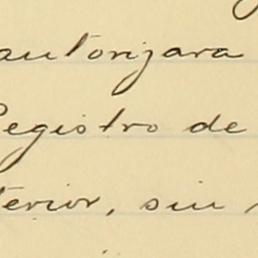 autorizara
Registro de
terior, sin